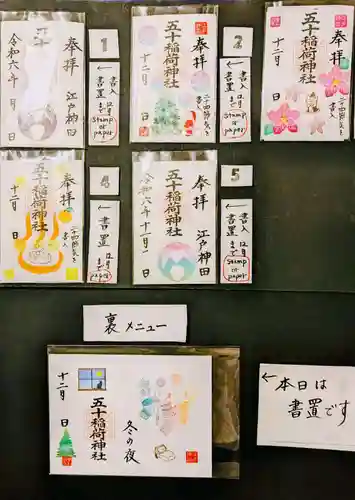 奉拝
五十
江戸神田
令和六年 月 日
1
←書入
書置
12月まで
Stamp or paper
奉拝
五十稲荷神社
十二月 日
2
←書入
書置
12月まで
Stamp or paper
奉拝
五十稲荷神社
十二月 日
奉拝
五十稲荷神社
十二月 日
4
←書置
12月まで
Stamp or paper
奉拝
江戸神田
五十稲荷神社
令和六年十二月 日
5
←書入
書置
12月まで
Stamp or paper
裏メニュー
冬の夜
五十稲荷神社
十二月 日
←本日は
書置です